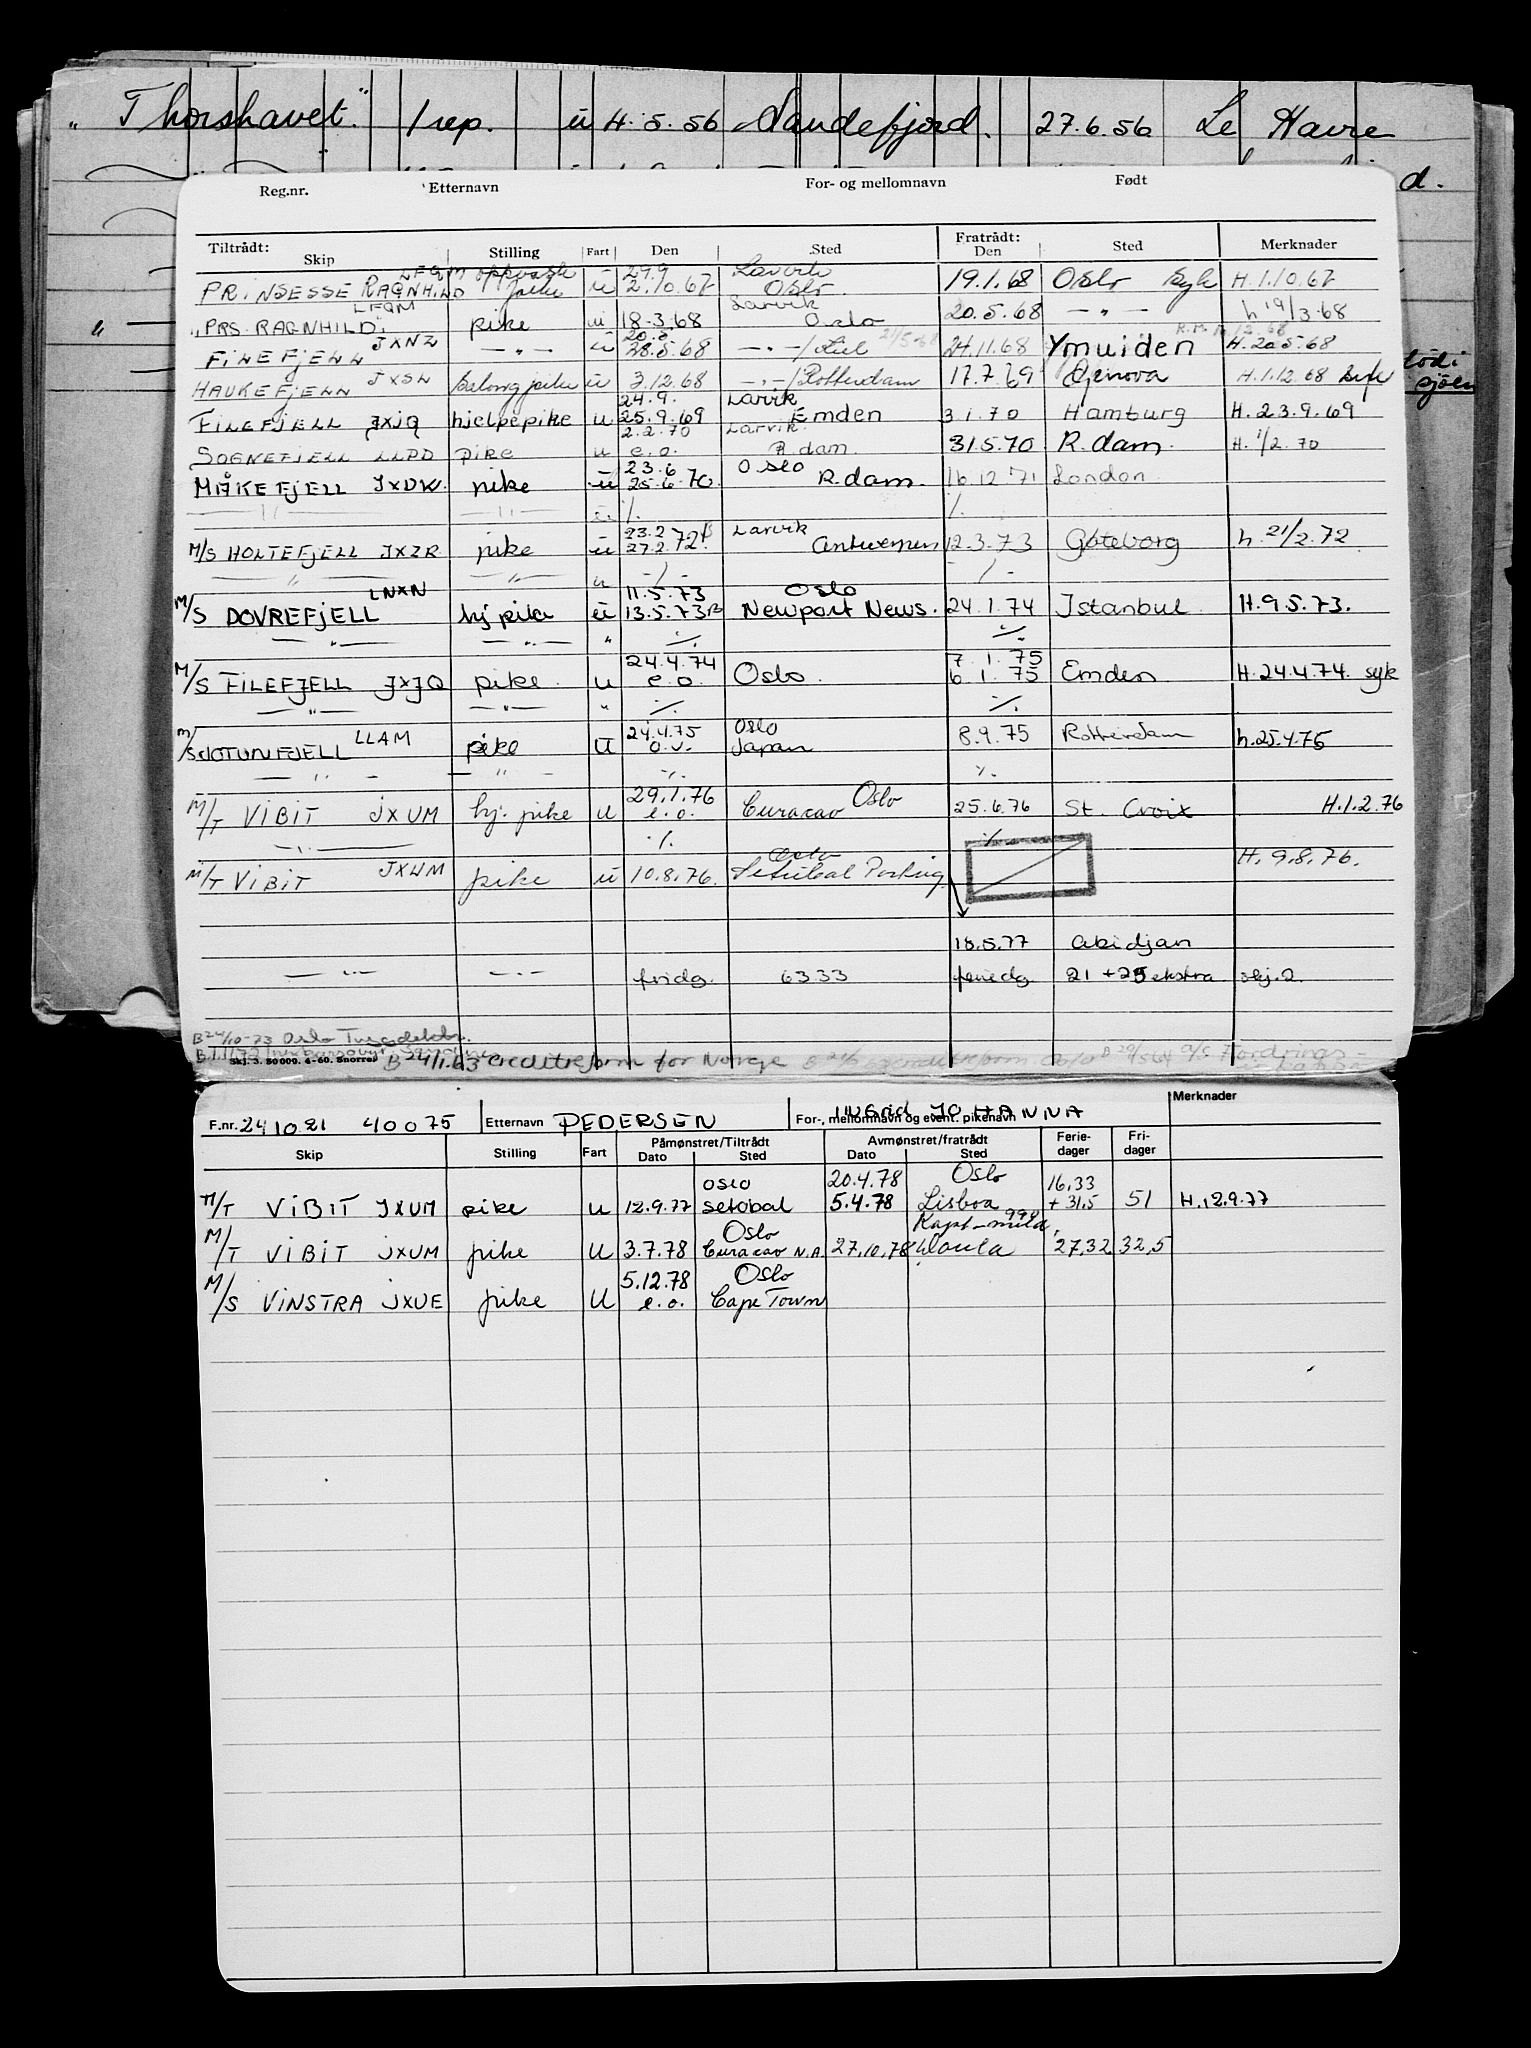 „ Thorshavet." 1 rep. ū 4.5.56 Sandefjord. 27.6.56 Le Havre
d.
Reg.nr. Etternavn For- og mellomnavn Født
Tiltrådt: Skip Stilling Fart Den Sted Fratrådt: Den Sted Merknader
LFQM oppvask 29.9 Larvik
PRINSESSE RAGNHILD pike ū 2.10.67 Oslo 19.1.68 Oslo Syk H.1.10.67
LFQM Larvik
„PRS. RAGNHILD. pike ū 18-3.68 Oslo 20.5.68 — " — h 19/3-68
JXNZ 20.5.
FILEFJELL — " — ū 28.5.68 — " —/Kiel 24.11.68 Ymuiden H.20.5.68
HAUKEFJELL JXSN salongpike ū 3.12.68 — " —/Rotterdam 17.7.69 Genova H.1.12.68
24.9. Larvik
FILEFJELL JXJQ hjelpepike u 25.9.69 Emden 3.1.70 Hamburg H.23.9.69
2.2.70 Larvik.
SOGNEFJELL LLPD pike u e.o. R.dam. 31.5.70 R.dam. H. 1/2.70
23.6 Oslo
MÅKEFJELL JXDW. pike ū 25.6.70. R.dam. 16.12.71 London
— " — — " — ū ./. ./.
23.2 Larvik
M/S HOLTEFJELL JXZR pike ū 27.2.72 Antwerpen 12.3.73 Gøteborg h.21/2.72
— " — — " — u -/- -/-
LNXN 11.5.73 Oslo
M/S DOVREFJELL hj pike ū 13.5.73 Newport News. 24.1.74 Istanbul H.9.5.73.
— " — — " — " ./. ./.
24.4.74 7.1.75
M/S FILEFJELL JXJQ pike u e.o. Oslo. 6.1.75 Emden H.24.4.74. syk
— " — — " — " ./. ./.
LLAM 24.4.75 Oslo
M/S JOTUNFJELL pike ū o.v. Japan 8.9.75 Rotterdam h.25.4.75
— " — — " — ./. ./.
29.1.76 Oslo
M/T VIBIT JXUM hj. pike u e.o. Curacao 25.6.76 St. Croix H.1.2.76
— " — ./. ./.
Oslo H. 9.8.76.
M/T VIBIT JXUM pike ū 10.8.76. Setubal Portug
18.5.77 Abidjan
— " — — " — fridg. 63.33 feriedg. 21 + 25 ekstra skj.2
B 24/10-73 Oslo
Skj. 3. 50 000. 4-60. Snorres B 24/1.63 Creditreform for Norge
F.nr. 241021 40075 Etternavn PEDERSEN For-, mellomnavn og event. pikenavn INGRID JOHANNA Merknader
Skip Stilling Fart Påmønstret/Tiltrådt Dato Sted Avmønstret/fratrådt Dato Sted Ferie-dager Fri-dager
Oslo 20.4.78 Oslo 16,33
M/T VIBIT JXUM pike u 12.9.77 Setubal 5.4.78 Lisboa + 31,5 51 H.12.9.77
Oslo
M/T VIBIT JXUM pike u 3.7.78 Curacao N.A. 27.10.78 27,32 32,5
5.12.78 Oslo
M/S VINSTRA JXUE pike u e.o. Cape Town